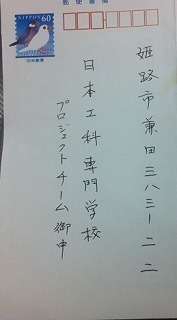 郵便書簡
NIPPON 60
日本郵便
姫路市兼田三八三ー二二
日本工科専門学校
プロジェクトチーム御中